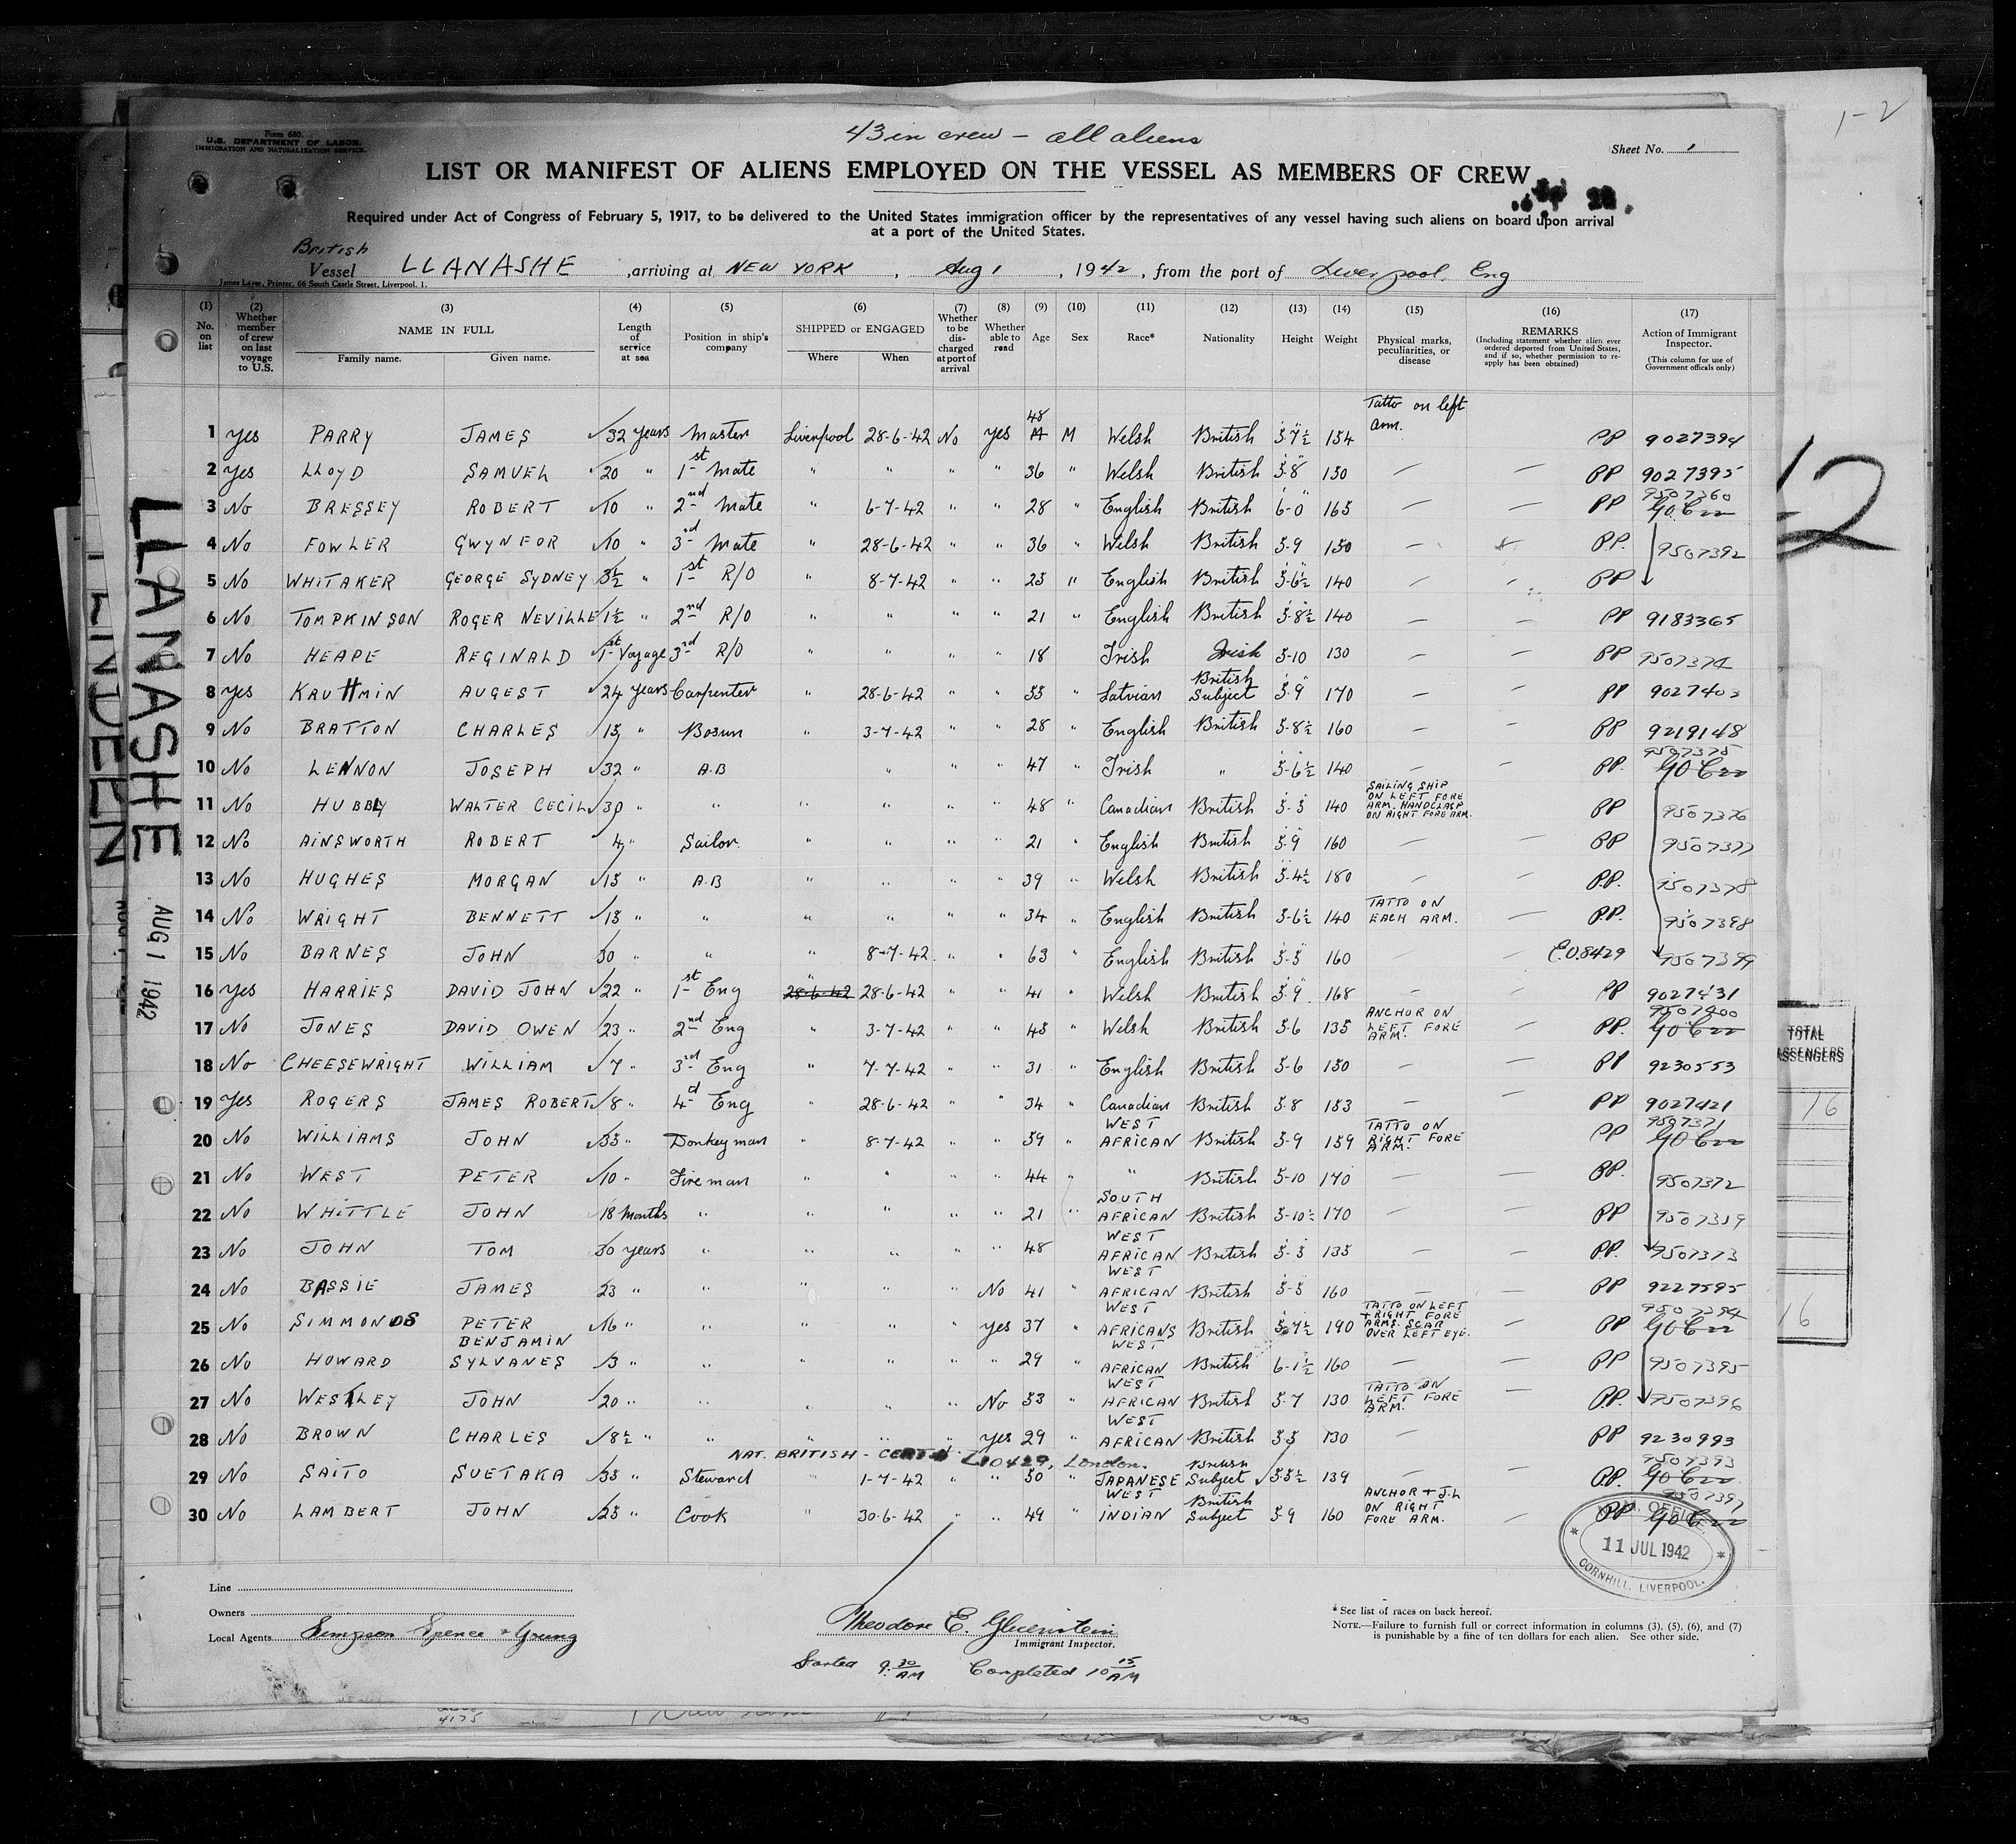 1-2
43 in crew - all aliens
Form 680.
U.S. DEPARTMENT OF LABOR.
IMMIGRATION AND NATURALIZATION SERVICE.
Sheet No. 1
LIST OR MANIFEST OF ALIENS EMPLOYED ON THE VESSEL AS MEMBERS OF CREW
Required under Act of Congress of February 5, 1917, to be delivered to the United States immigration officer by the representatives of any vessel having such aliens on board upon arrival
at a port of the United States.
British
Vessel LLANASHE , arriving at NEW YORK , Aug 1 , 1942 , from the port of Liverpool. Eng
James Laver, Printer, 66 South Castle Street, Liverpool. 1.
(1) No. on list (2) Whether member of crew on last voyage to U.S. (3) NAME IN FULL Family name. Given name. (4) Length of service at sea (5) Position in ship's company (6) SHIPPED or ENGAGED Where When (7) Whether to be discharged at port of arrival (8) Whether able to read (9) Age (10) Sex (11) Race* (12) Nationality (13) Height (14) Weight (15) Physical marks, peculiarities, or disease (16) REMARKS (Including statement whether alien ever ordered deported from United States, and if so, whether permission to re-apply has been obtained) (17) Action of Immigrant Inspector. (This column for use of Government officals only)
1 yes PARRY JAMES 32 years Master Liverpool 28-6-42 No yes 48 M Welsh British 5-7½ 154 Tatto on left arm. PP 9027394
2 Yes LLOYD SAMUEL 20 " 1st Mate " " " " 36 " Welsh British 5-8 150 — — PP 9027395
3 No BRESSEY ROBERT 10 " 2nd Mate " 6-7-42 " " 28 " English British 6-0 165 — — PP 9507360
4 No FOWLER GWYNFOR 10 " 3rd Mate " 28-6-42 " " 36 " Welsh British 5-9 150 — PP. 9507392
5 No WHITAKER GEORGE SYDNEY 3½ " 1st R/O " 8-7-42 " " 25 " English British 5-6½ 140 — — PP
6 No TOMPKINSON ROGER NEVILLE 1½ " 2nd R/O " " " " 21 " English British 5-8½ 140 — — PP 9183365
7 No HEAPE REGINALD 1st Voyage 3rd R/O " " " " 18 " Irish Irish 5-10 130 — — PP 9507374
8 yes KAUHMIN AUGEST 24 years Carpenter " 28-6-42 " " 55 " Latvian British Subject 5-9 170 — — PP 902740
9 No BRATTON CHARLES 15 " Bosun " 3-7-42 " " 28 " English British 5-8½ 160 — — PP 9219148
10 No LENNON JOSEPH 32 " A.B " " " 47 " Irish " 5-6½ 140 — — PP. 9507375
11 No HUBBLY WALTER CECIL 30 " " " " " " 48 " Canadian British 5-5 140 SAILING SHIP ON LEFT FORE ARM. HANDCLASP ON RIGHT FORE ARM. PP 9507376
12 No AINSWORTH ROBERT 4 " Sailor. " " " " 21 " English British 5-9 160 — — PP 9507377
13 No HUGHES MORGAN 15 " A.B " " " " 39 " Welsh British 5-4½ 180 — — P.P. 9507378
14 No WRIGHT BENNETT 15 " " " " " " 34 " English British 5-6½ 140 TATTO ON EACH ARM. — P.P. 9507398
15 No BARNES JOHN 30 " " " 8-7-42 " " 63 " English British 5-5 160 — E.O.8429 9507399
16 yes HARRIES DAVID JOHN 22 " 1st Eng " 28-6-42 28-6-42 " " 41 " Welsh British 5-9 168 — — PP 9027431
17 No JONES DAVID OWEN 23 " 2nd Eng " 3-7-42 " " 45 " Welsh British 5-6 135 ANCHOR ON LEFT FORE ARM. — PP. 9507400
18 No CHEESEWRIGHT WILLIAM 7 " 3rd Eng " 7-7-42 " " 31 " English British 5-6 150 — — PP 9230553
19 Yes ROGERS JAMES ROBERT 8 " 4d Eng " 28-6-42 " " 34 " Canadian British 5-8 153 — — PP 9027421
20 No WILLIAMS JOHN 35 " Donkeyman " 8-7-42 " " 59 " WEST AFRICAN British 5-9 159 TATTO ON RIGHT FORE ARM. — PP 9507371
21 No WEST PETER 10 " Fireman " " " " 44 " " British 5-10 170 — — PP. 9507372
22 No WHITTLE JOHN 18 Months " " " " " 21 " SOUTH AFRICAN British 5-10½ 170 — — PP
23 No JOHN TOM 30 years " " " " " 48 WEST AFRICAN British 5-5 135 — — PP. 9507373
24 No BASSIE JAMES 23 " " " " " No 41 " WEST AFRICAN British 5-5 160 — — PP 9227595
25 No SIMMONDS PETER BENJAMIN 16 " " " " " yes 37 " WEST AFRICANS British 5-7½ 190 TATTO ON LEFT + RIGHT FORE ARMS. SCAR OVER LEFT EYE. — PP 9507394
26 No HOWARD SYLVANES 3 " " " " " " 29 " WEST AFRICAN British 6-1½ 160 — — PP 9507395
27 No WESTLEY JOHN 20 " " " " " No 53 " WEST AFRICAN British 5-7 130 TATTO ON LEFT FORE ARM. — P.P. 9507396
28 No BROWN CHARLES 8½ " " " " " yes 29 " WEST AFRICAN British 5-5 130 — — PP 9230993
NAT. BRITISH - CERT# Z10429, London.
29 No SAITO SUETAKA 35 " Steward " 1-7-42 " " 50 " JAPANESE British Subject 5-5½ 139 — — PP. 9507393
30 No LAMBERT JOHN 25 " Cook " 30-6-42 " " 49 " WEST INDIAN British Subject 5-9 160 ANCHOR + J.L ON RIGHT FORE ARM. — PP 9507397
11 JUL 1942
CORNHILL, LIVERPOOL.
Line
Owners
Local Agents Simpson Spence + Young
Theodore E. Gluenstein
Immigrant Inspector.
Started 9.30 AM Completed 10 15 AM
* See list of races on back hereof.
NOTE.—Failure to furnish full or correct information in columns (3), (5), (6), and (7)
is punishable by a fine of ten dollars for each alien. See other side.
LLANASHE
AUG 1 1942
LINDEEN
TOTAL
ASSENGERS
16
16
4175